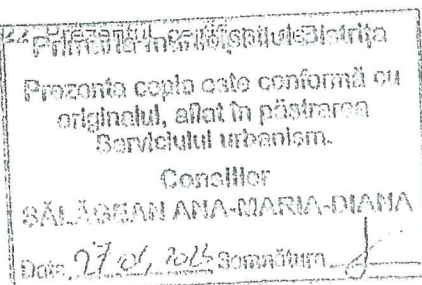 Primăria municipiului Bistrița
Prezenta copie este conformă cu
originalul, aflat în păstrarea
Serviciului urbanism.
Consilier
SĂLĂGEAN ANA-MARIA-DIANA
Data 27 Semnătura